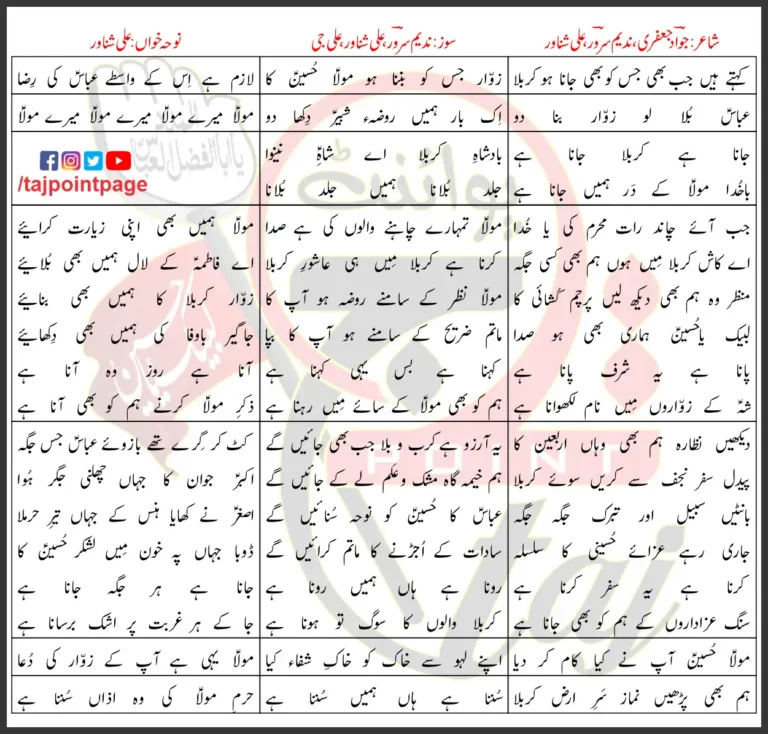 شاعر: جواد جعفری، ندیم سرور، علی شناور
سوز: ندیم سرور، علی شناور، علی جی
نوحہ خواں: علی شناور
کہتے ہیں جب بھی جس کو بھی جانا ہو کربلا
زوّار جس کو بننا ہو مولا حُسینؑ کا
لازم ہے اِس کے واسطے عباسؑ کی رِضا
عباسؑ بُلا لو زوّار بنا دو
اِک بار ہمیں روضۂ شبیرؑ دِکھا دو
مولاؑ میرے مولاؑ میرے مولاؑ میرے مولاؑ
جانا ہے کربلا جانا ہے
بادشاہِ کربلا اے شاہِؑ نینوا
باخُدا مولاؑ کے دَر ہمیں جانا ہے
جلد بُلانا ہمیں جلد بُلانا
/tajpointpage
جب آئے چاند رات محرم کی یا خُدا
مولاؑ تمہارے چاہنے والوں کی ہے صدا
مولاؑ ہمیں بھی اپنی زیارت کرائیے
اے کاش کربلا مِیں ہوں ہم بھی کسی جگہ
کرنا ہے کربلا مِیں ہی عاشورِ کربلا
اے فاطمہؑ کے لال ہمیں بھی بُلائیے
منظر وہ ہم بھی دیکھ لیں پرچم کُشائی کا
مولاؑ نظر کے سامنے روضہ ہو آپ کا
زوّار کربلا کا ہمیں بھی بنائیے
لبیک یا حُسینؑ ہماری بھی ہو صدا
ماتم ضریح کے سامنے ہو آپ کا بپا
جاگیر باوفا کی ہمیں بھی دِکھائیے
پانا ہے یہ شرف پانا ہے
کہنا ہے بس یہی کہنا ہے
آنا ہے روز وہ آنا ہے
شہؑ کے زوّاروں مِیں نام لکھوانا ہے
ہم کو بھی مولاؑ کے سائے مِیں رہنا ہے
ذکرِ مولاؑ کرنے ہم کو بھی آنا ہے
دیکھیں نظارہ ہم بھی وہاں اربعین کا
یہ آرزو ہے کرب و بلا جب بھی جائیں گے
کٹ کر گِرے تھے بازوئے عباسؑ جس جگہ
پیدل سفر نجف سے کریں سوئے کربلا
ہم خیمہ گاہ مشک و علَم لے کے جائیں گے
اکبرؑ جوان کا جہاں چھلنی جگر ہُوا
بانٹیں سبیل اور تبرّک جگہ جگہ
عباسؑ کا حُسینؑ کو نوحہ سُنائیں گے
اصغرؑ نے کھایا ہنس کے جہاں تیرِ حرملا
جاری رہے عزائے حُسینی کا سلسلہ
سادات کے اُجڑنے کا ماتم کرائیں گے
ڈوبا جہاں پہ خون مِیں لشکر حُسینؑ کا
کرنا ہے یہ سفر کرنا ہے
رونا ہے ہاں ہمیں رونا ہے
جانا ہے ہر جگہ جانا ہے
سنگ عزاداروں کے ہم کو بھی جانا ہے
کربلا والوں کا سوگ تو ہونا ہے
جا کے ہر غربت پر اشک برسانا ہے
مولاؑ حُسینؑ آپ نے کیا کام کر دیا
اپنے لہو سے خاک کو خاکِ شفاء کیا
مولاؑ یہی ہے آپ کے زوّار کی دُعا
ہم بھی پڑھیں نماز سَرِ ارضِ کربلا
سُننا ہے ہاں ہمیں سُننا ہے
حرمِ مولاؑ کی وہ اذاں سُننا ہے